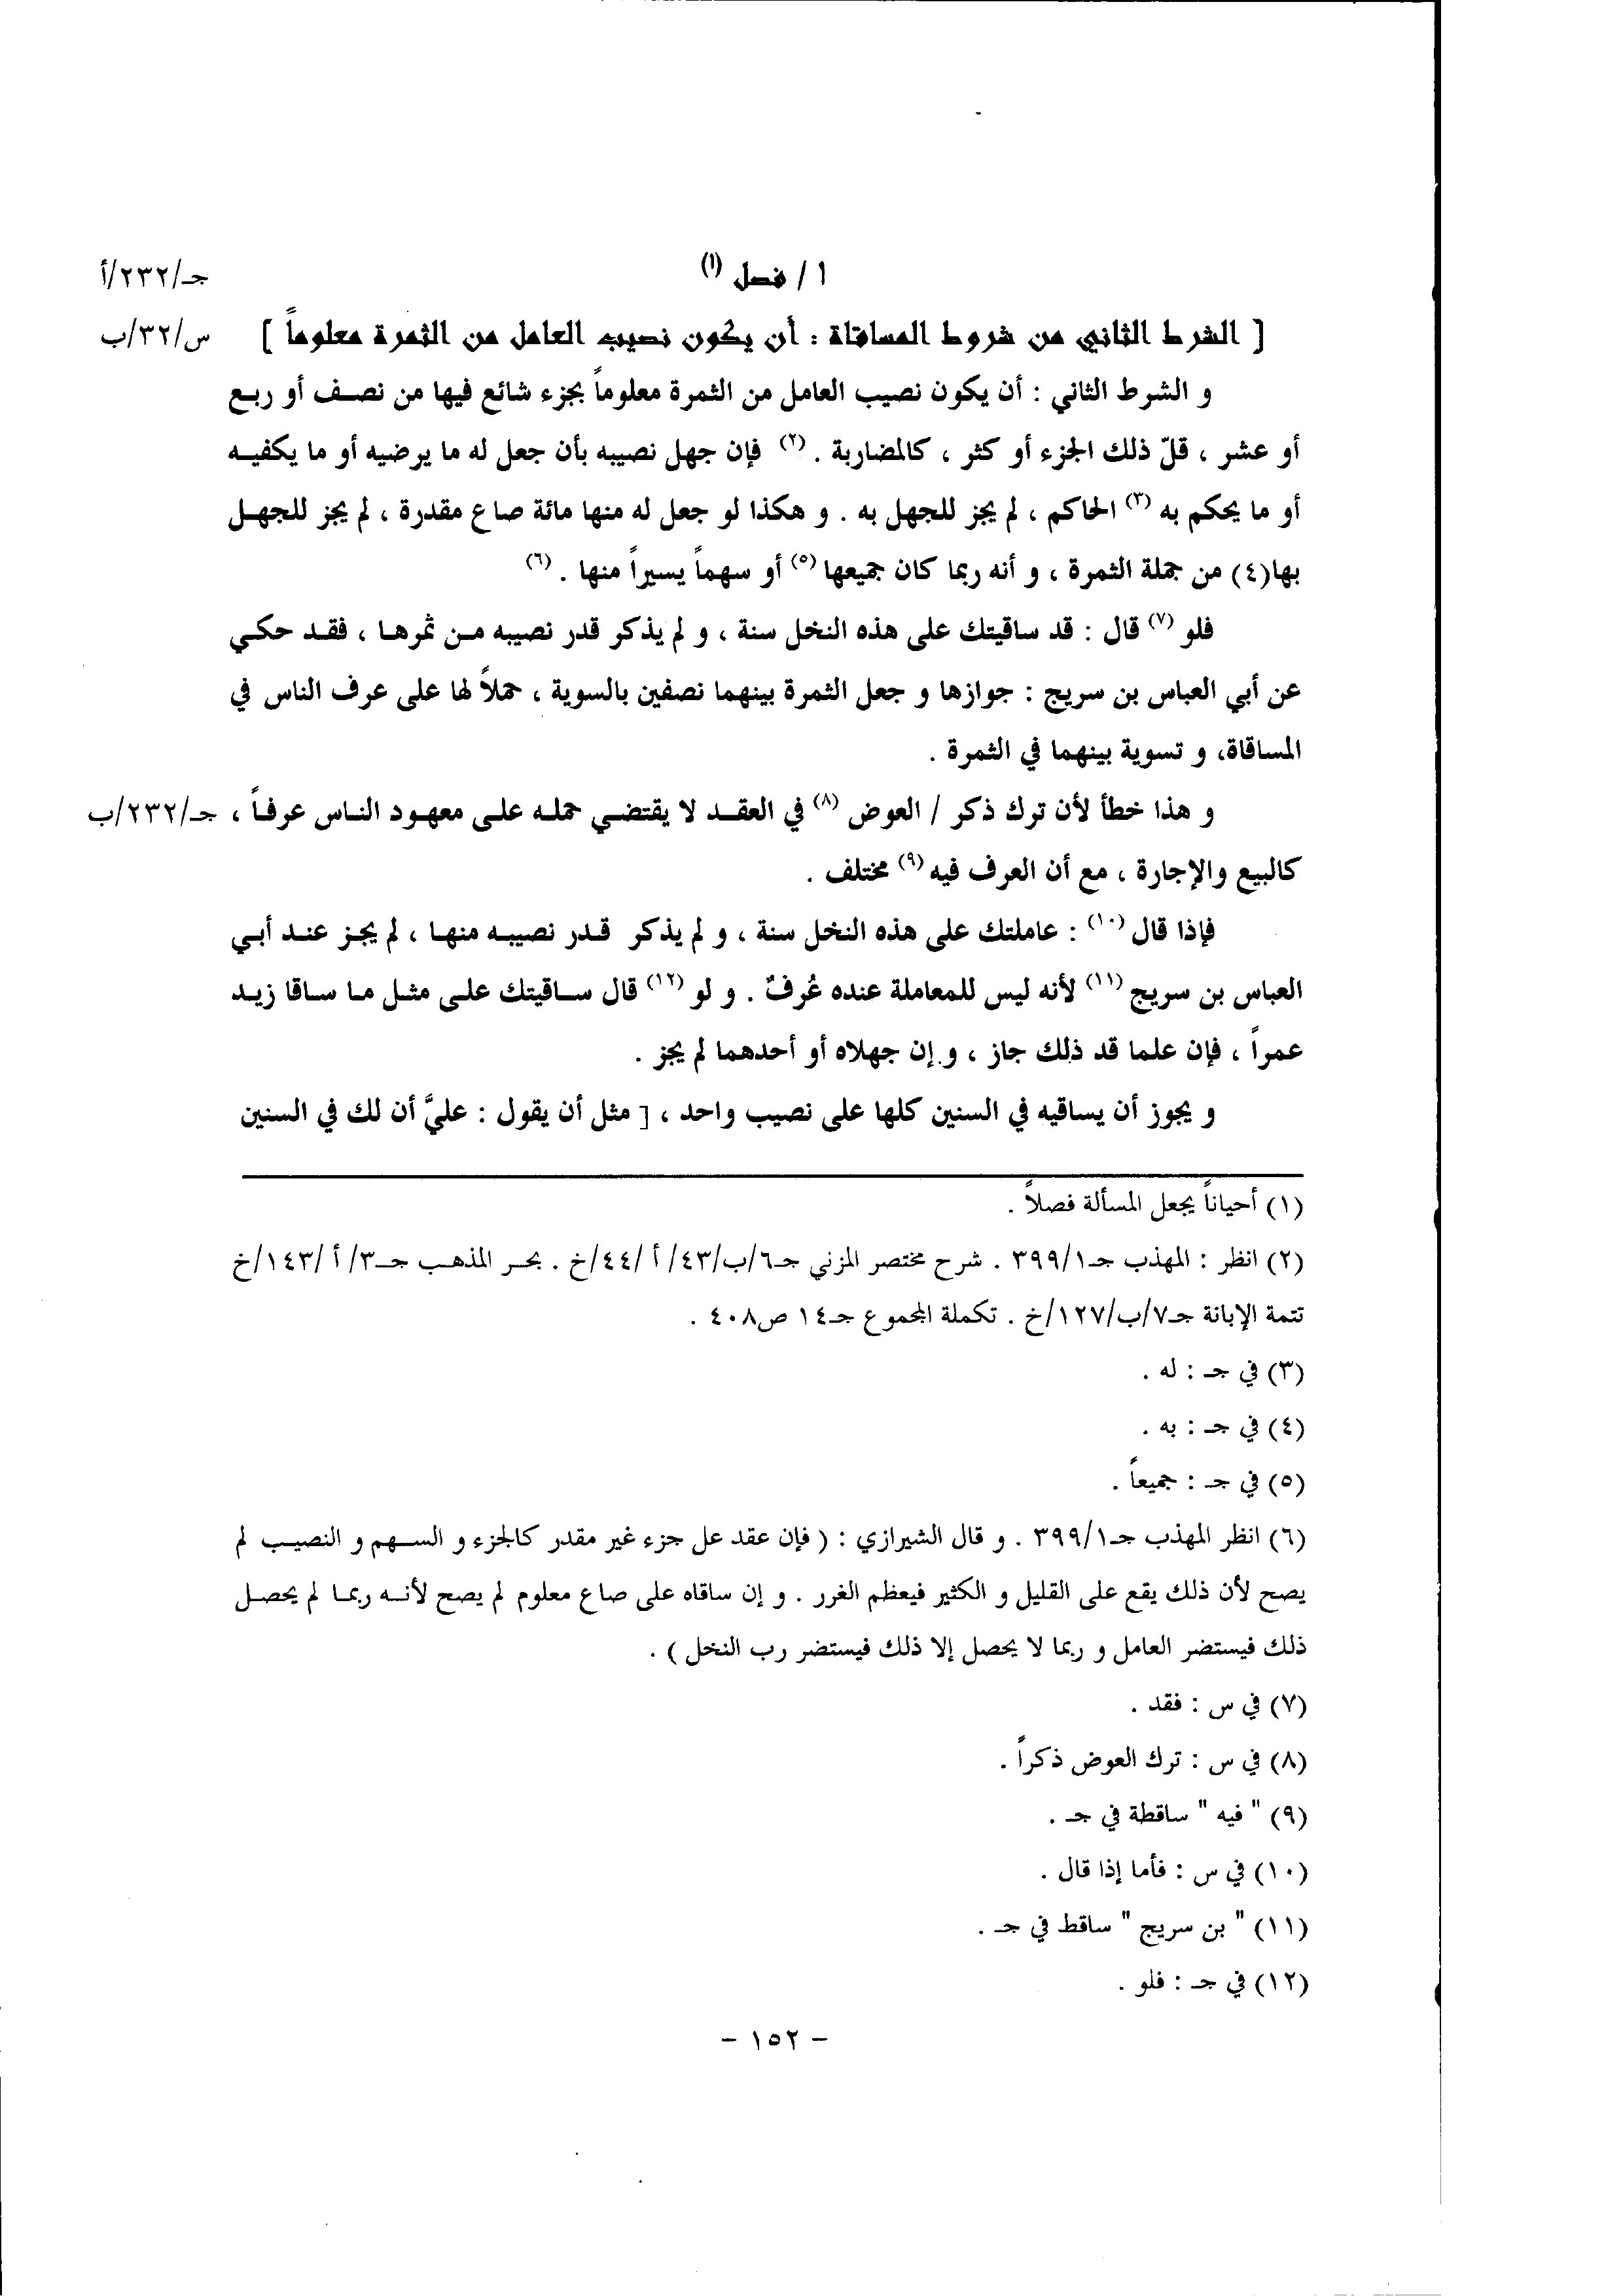 ١ / فصل (١) جـ/٢٣٢/أ
[ الشرط الثاني من شروط المساقاة : أن يكون نصيب العامل من الثمرة معلوماً ] س/٣٢/ب
و الشرط الثاني : أن يكون نصيب العامل من الثمرة معلوماً بجزء شائع فيها من نصف أو ربع
أو عشر ، قلّ ذلك الجزء أو كثر ، كالمضاربة . (٢) فإن جهل نصيبه بأن جعل له ما يرضيه أو ما يكفيه
أو ما يحكم به (٣) الحاكم ، لم يجز للجهل به . و هكذا لو جعل له منها مائة صاع مقدرة ، لم يجز للجهل
بها(٤) من جملة الثمرة ، و أنه ربما كان جميعها (٥) أو سهماً يسيراً منها . (٦)
فلو (٧) قال : قد ساقيتك على هذه النخل سنة ، و لم يذكر قدر نصيبه من ثمرها ، فقد حكي
عن أبي العباس بن سريج : جوازها و جعل الثمرة بينهما نصفين بالسوية ، حملاً لها على عرف الناس في
المساقاة، و تسوية بينهما في الثمرة .
و هذا خطأ لأن ترك ذكر / العوض (٨) في العقد لا يقتضي حمله على معهود الناس عرفاً ، جـ/٢٣٢/ب
كالبيع والإجارة ، مع أن العرف فيه (٩) مختلف .
فإذا قال (١٠) : عاملتك على هذه النخل سنة ، و لم يذكر قدر نصيبه منها ، لم يجز عند أبي
العباس بن سريج (١١) لأنه ليس للمعاملة عنده عُرفٌ . و لو (١٢) قال ساقيتك على مثل ما ساقا زيد
عمراً ، فإن علما قد ذلك جاز ، و إن جهلاه أو أحدهما لم يجز .
و يجوز أن يساقيه في السنين كلها على نصيب واحد ، [ مثل أن يقول : عليَّ أن لك في السنين
(١) أحياناً يجعل المسألة فصلاً .
(٢) انظر : المهذب جـ٣٩٩/١ . شرح مختصر المزني جـ٦/ب/٤٣/ أ /٤٤/خ . بحر المذهب جـ٣/ أ /١٤٣/خ
تتمة الإبانة جـ٧/ب/١٢٧/خ . تكملة المجموع جـ١٤ ص٤٠٨ .
(٣) في جـ : له .
(٤) في جـ : به .
(٥) في جـ : جميعاً .
(٦) انظر المهذب جـ٣٩٩/١ . و قال الشيرازي : ( فإن عقد عل جزء غير مقدر كالجزء و السهم و النصيب لم
يصح لأن ذلك يقع على القليل و الكثير فيعظم الغرر . و إن ساقاه على صاع معلوم لم يصح لأنه ربما لم يحصل
ذلك فيستضر العامل و ربما لا يحصل إلا ذلك فيستضر رب النخل ) .
(٧) في س : فقد .
(٨) في س : ترك العوض ذكراً .
(٩) " فيه " ساقطة في جـ .
(١٠) في س : فأما إذا قال .
(١١) " بن سريج " ساقط في جـ .
(١٢) في جـ : فلو .
- ١٥٢ -